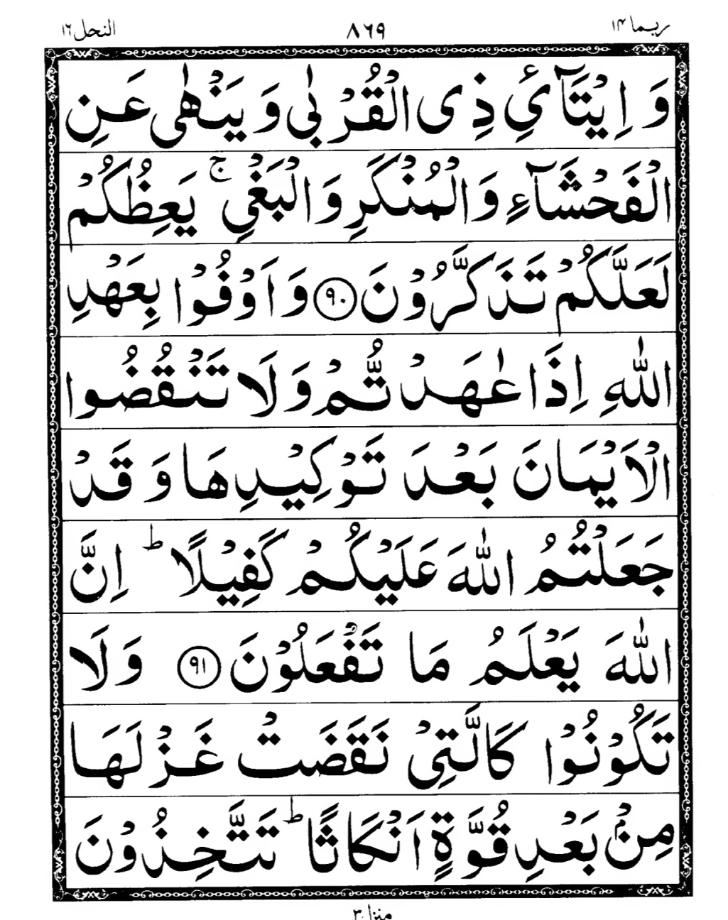 ربما ١٤ ٨٦٩ النحل ١٦
وَ اِیْتَآئِ ذِی الْقُرْبٰی وَ یَنْهٰی عَنِ
الْفَحْشَآءِ وَ الْمُنْكَرِ وَ الْبَغْیِ ۚ یَعِظُكُمْ
لَعَلَّكُمْ تَذَكَّرُوْنَ ﴿٩٠﴾ وَ اَوْفُوْا بِعَهْدِ
اللّٰهِ اِذَا عٰهَدْ تُّمْ وَ لَا تَنْقُضُوا
الْاَیْمَانَ بَعْدَ تَوْكِیْدِهَا وَ قَدْ
جَعَلْتُمُ اللّٰهَ عَلَیْكُمْ كَفِیْلًا ؕ اِنَّ
اللّٰهَ یَعْلَمُ مَا تَفْعَلُوْنَ ﴿٩١﴾ وَ لَا
تَكُوْنُوْا كَالَّتِیْ نَقَضَتْ غَزْلَهَا
مِنْۢ بَعْدِ قُوَّةٍ اَنْكَاثًا ؕ تَتَّخِذُوْنَ
منزل ٣